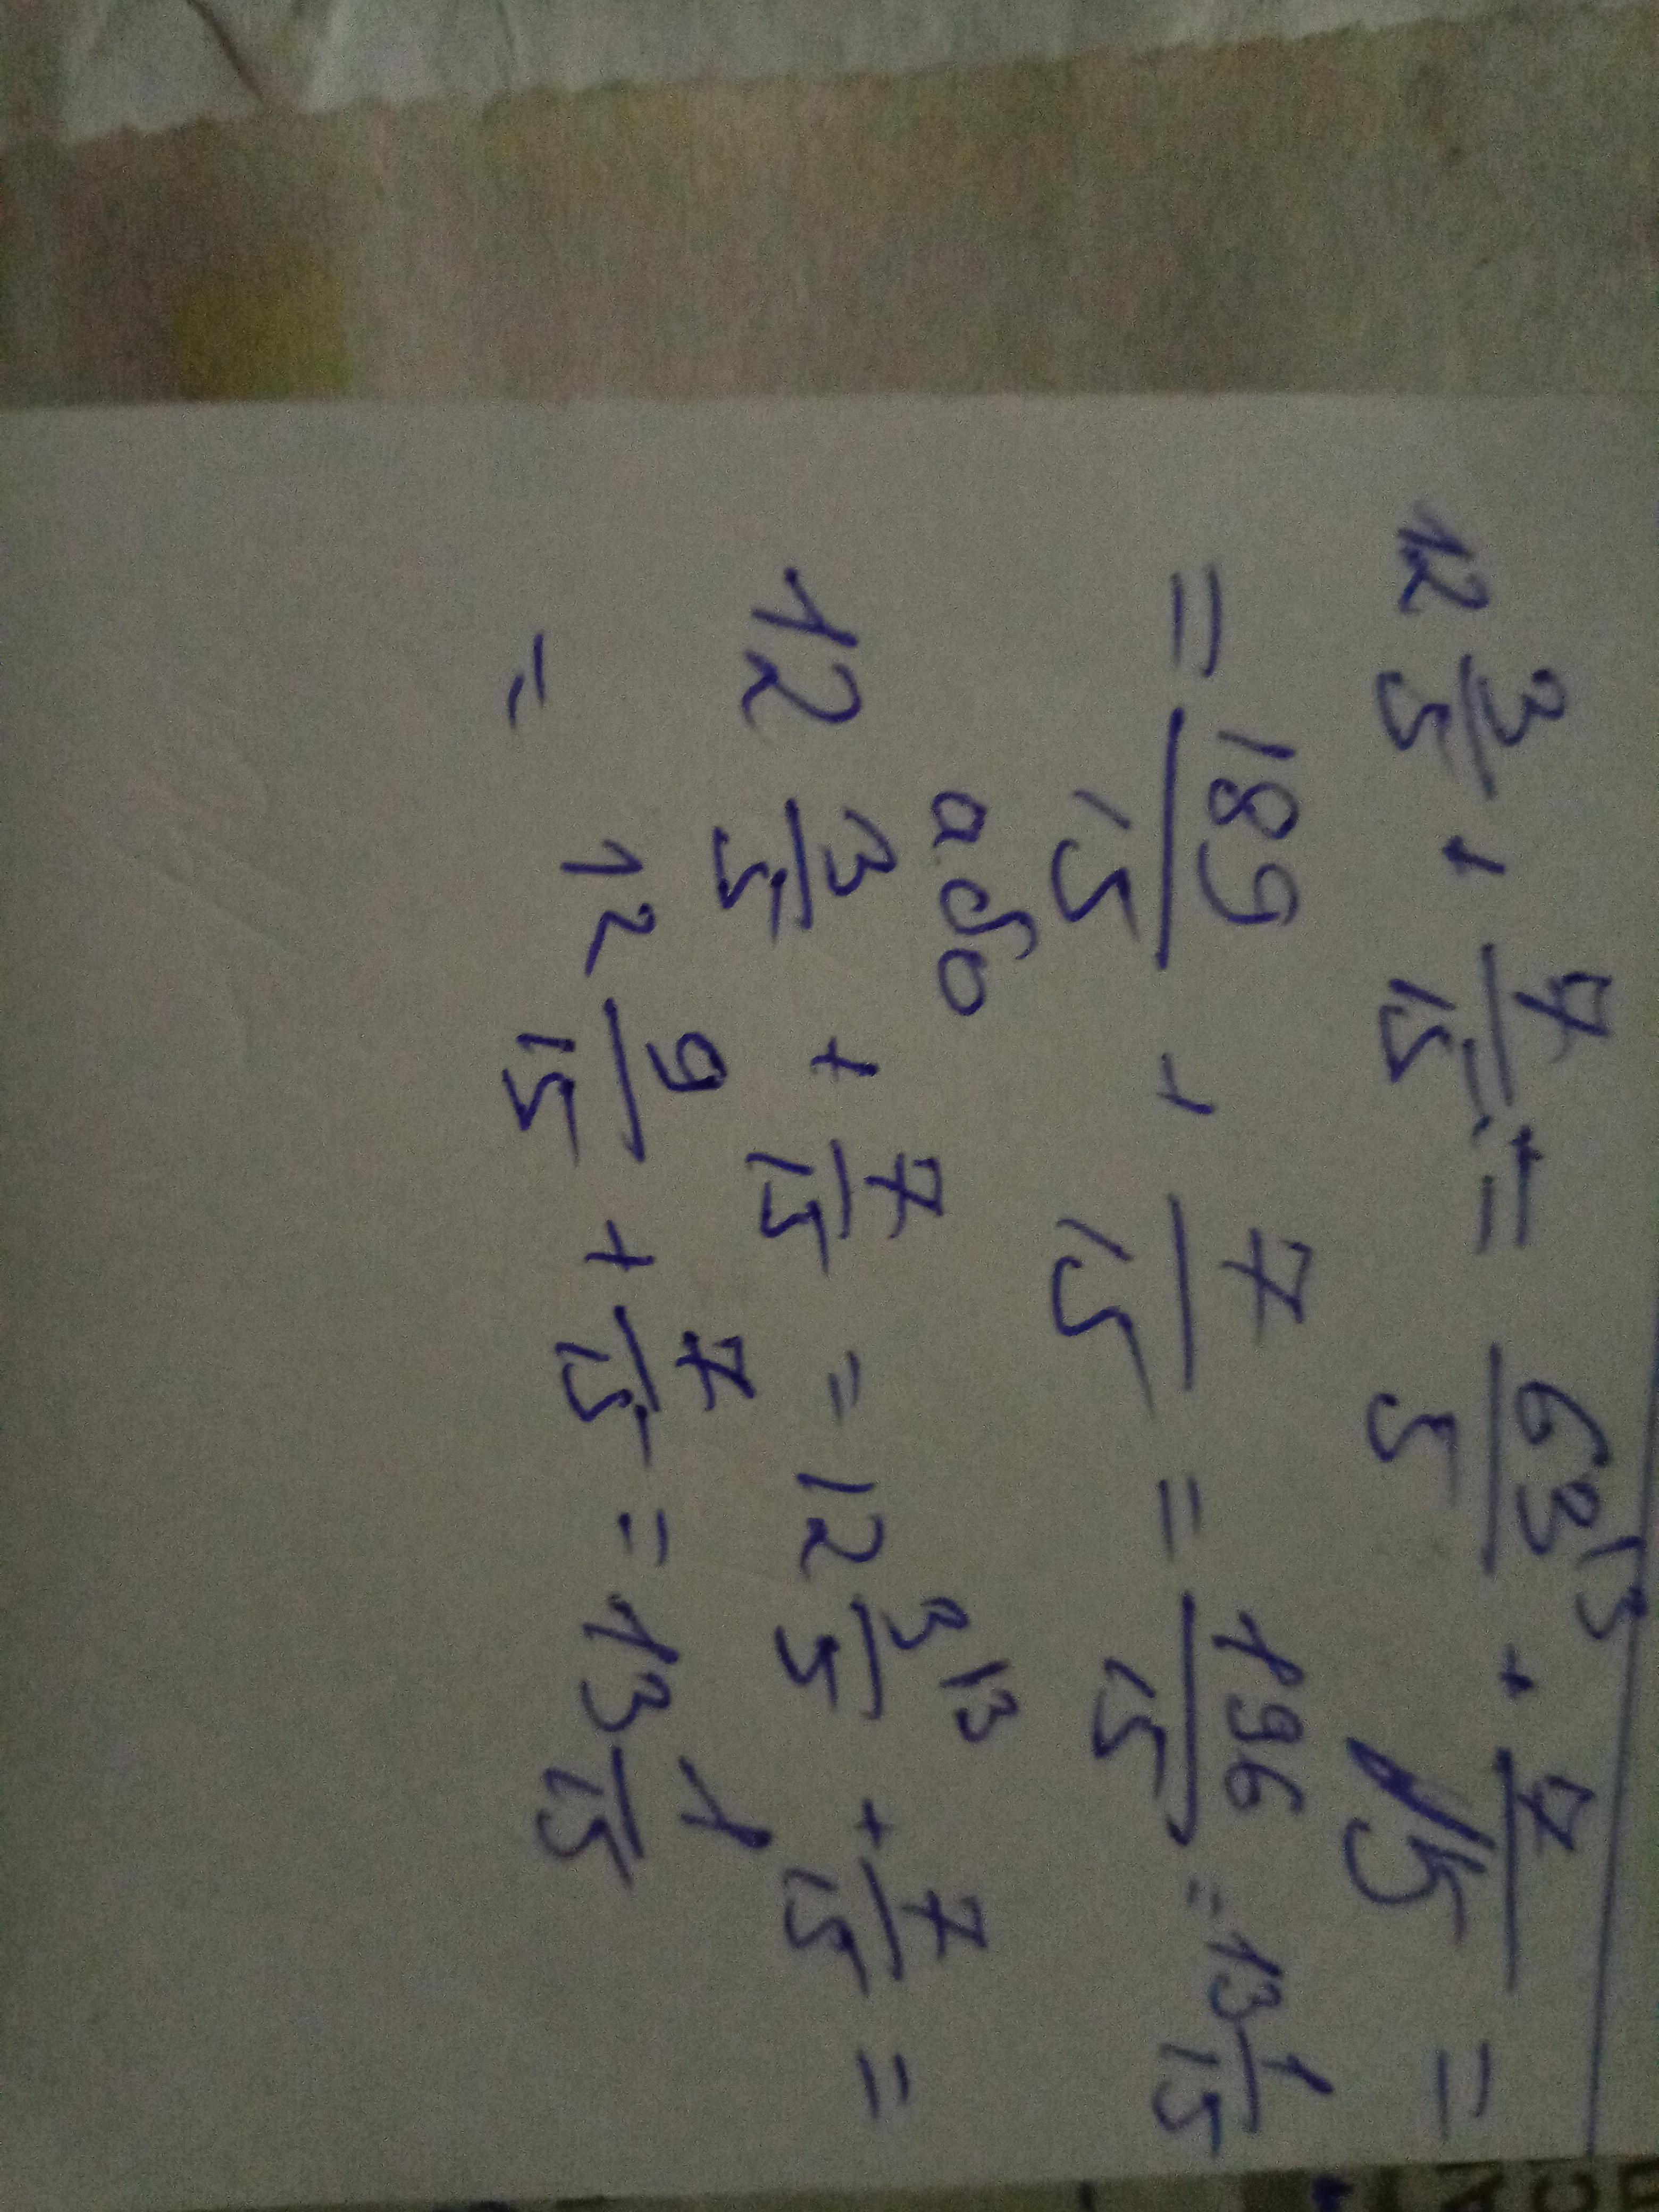 12 3/5 + 7/15 = 63/5 |3 + 7/15 =
= 189/15 + 7/15 = 196/15 = 13 1/15
або
12 3/5 + 7/15 = 12 3/5 |3 + 7/15 =
= 12 9/15 + 7/15 = 13 1/15